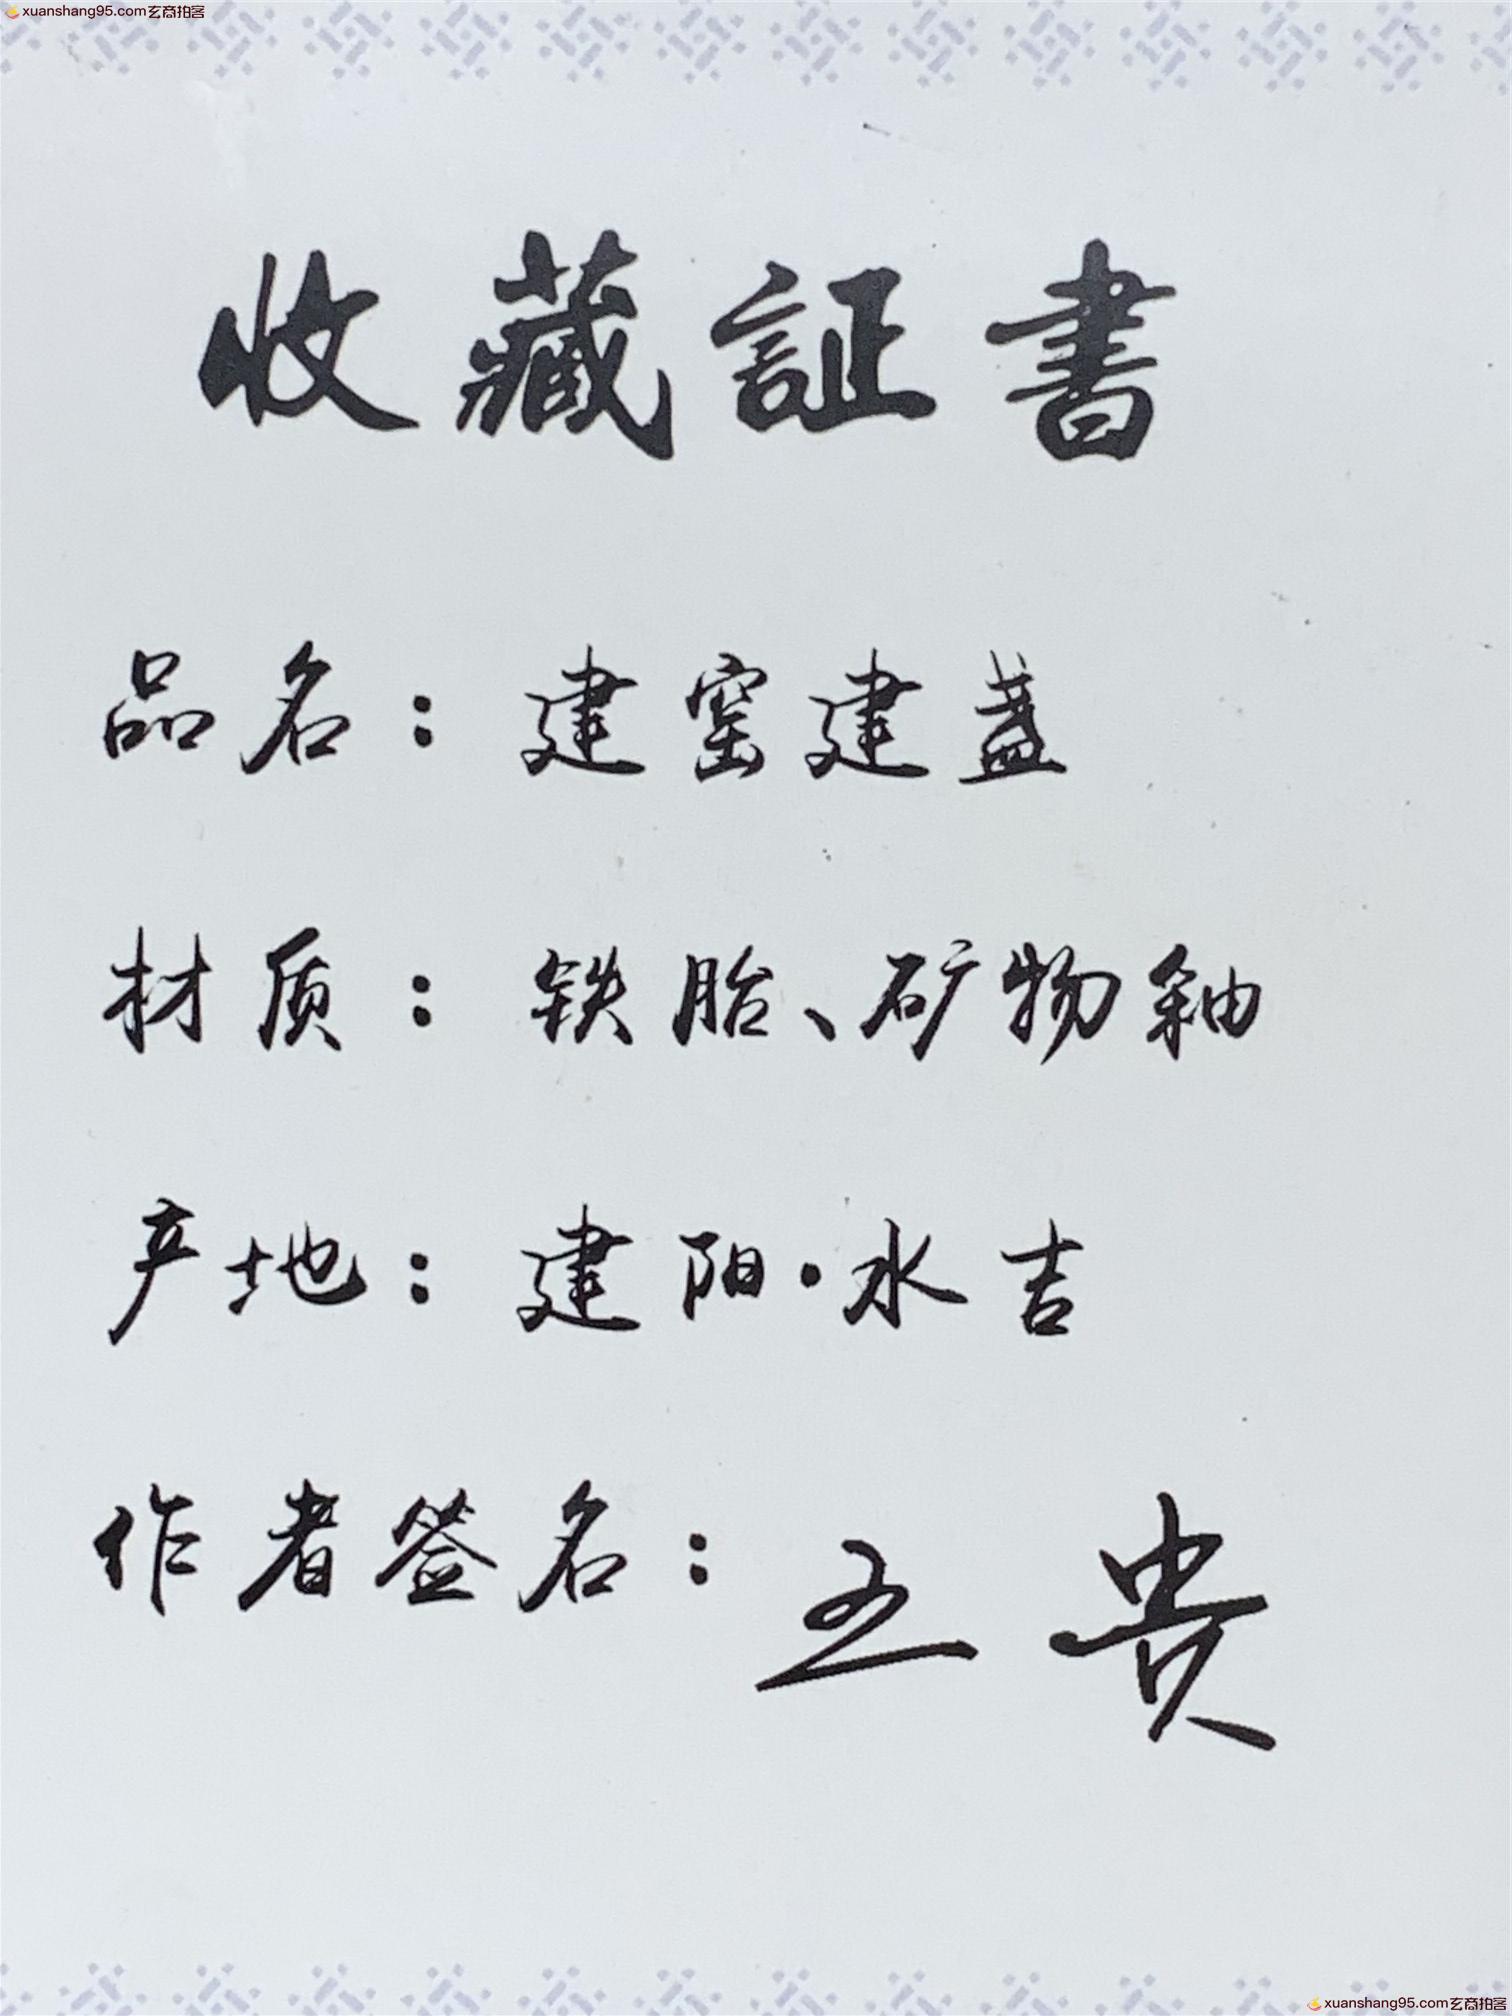 xuanshang95.com玄商拍客
收藏証書
品名：建窑建盏
材质：铁胎、矿物釉
产地：建阳·水吉
作者签名：王贵
xuanshang95.com玄商拍客